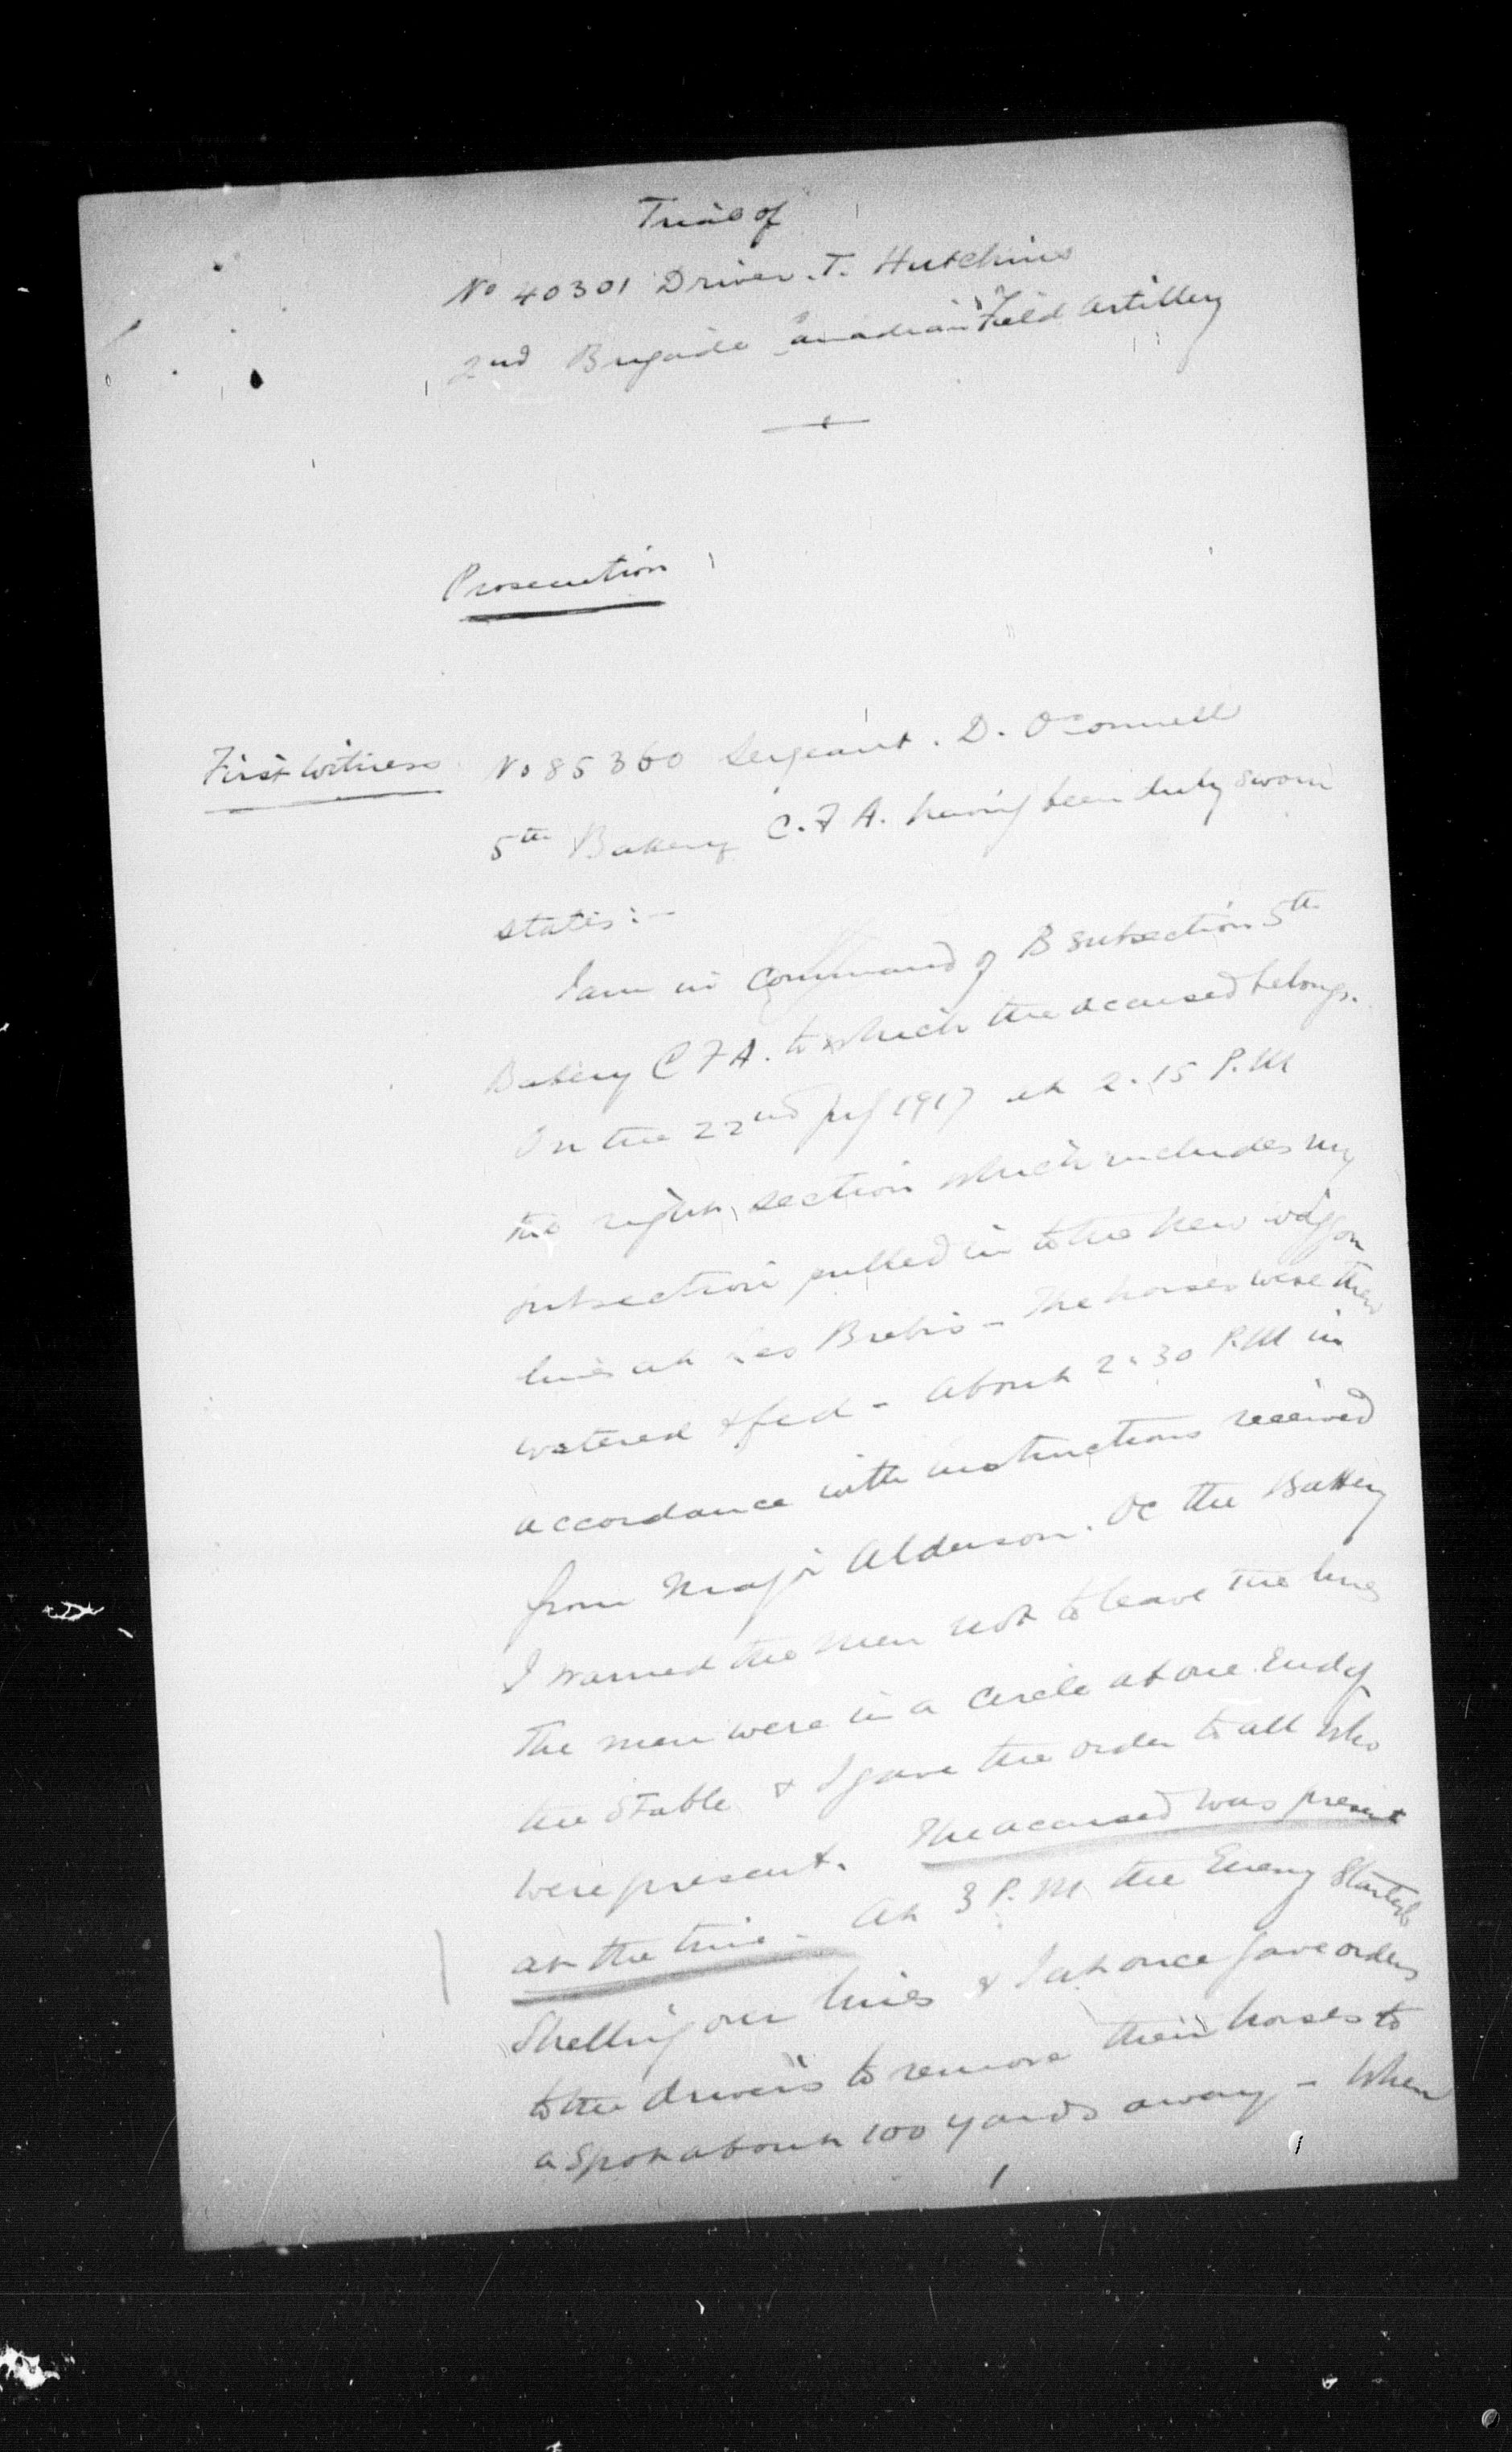 Trial of
No 40301 Driver. T. Hutchins
2nd Brigade Canadian Field Artillery
Prosecution
First Witness
No 85360 Sergeant. D. O'Connell
5th Battery C.F.A. having been duly sworn
states:-
I am in command of B subsection 5th
Battery C F A. to which the accused belongs.
On the 22nd July 1917 at 2.15 P.M
the right section which includes my
subsection pulled in to the new waggon
lines at Les Brebis - The horses were then
watered & fed - about 2.30 P.M in
accordance with instructions received
from Major Alderson. OC the Battery
I warned the men not to leave the lines
The men were in a circle at one end of
the Stable & I gave the order to all who
were present. The accused was present
at the time - At 3 P.M the Enemy Started
Shelling our lines & I at once gave orders
to the drivers to remove their horses to
a spot about 100 yards away - When
1